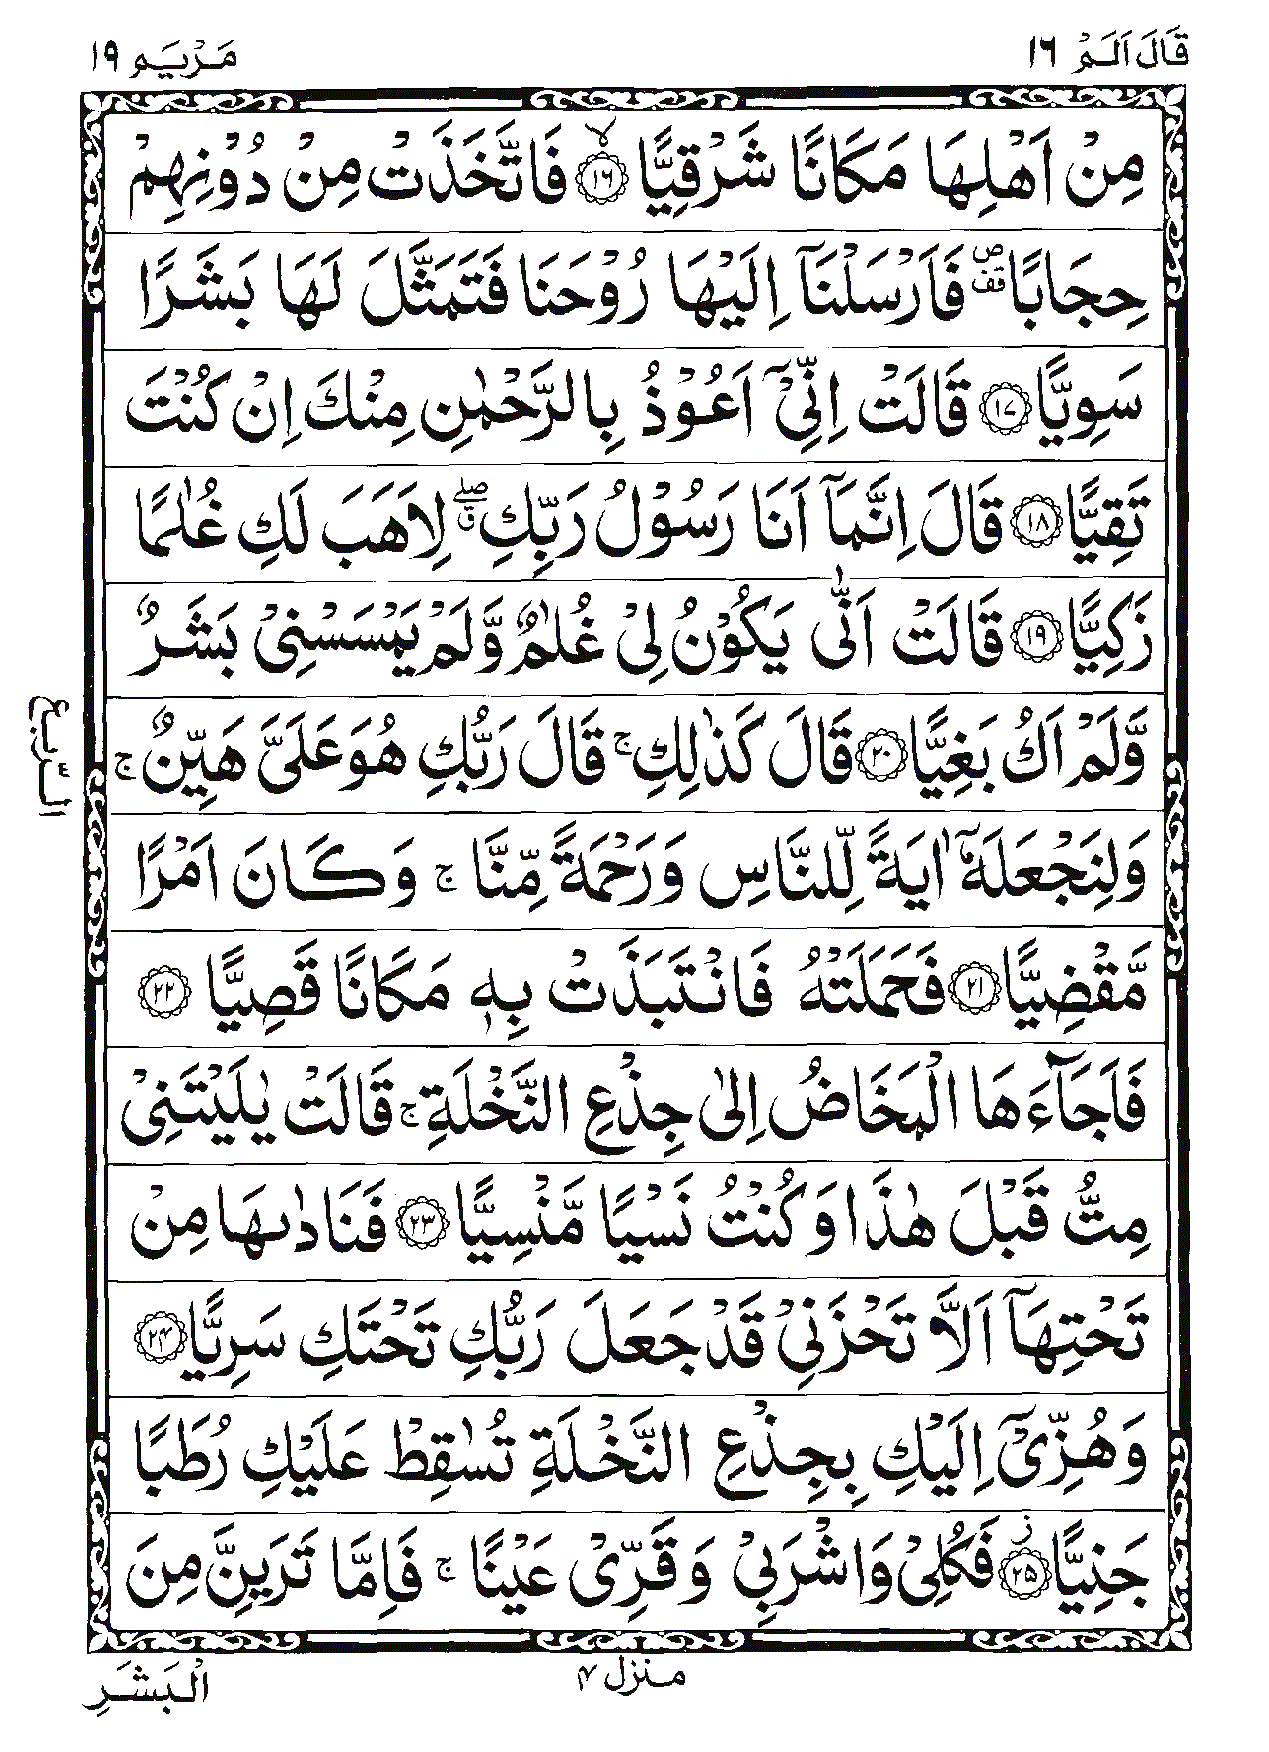 قَالَ اَلَمْ ١٦
مَرْيَم ١٩
مِنْ اَهْلِهَا مَكَانًا شَرْقِيًّا ۙ﴿١٦﴾ فَاتَّخَذَتْ مِنْ دُوْنِهِمْ
حِجَابًا ۪۫ فَاَرْسَلْنَاۤ اِلَيْهَا رُوْحَنَا فَتَمَثَّلَ لَهَا بَشَرًا
سَوِيًّا ﴿١٧﴾ قَالَتْ اِنِّيْۤ اَعُوْذُ بِالرَّحْمٰنِ مِنْكَ اِنْ كُنْتَ
تَقِيًّا ﴿١٨﴾ قَالَ اِنَّمَاۤ اَنَا رَسُوْلُ رَبِّكِ ۖۗ لِاَهَبَ لَكِ غُلٰمًا
زَكِيًّا ﴿١٩﴾ قَالَتْ اَنّٰى يَكُوْنُ لِيْ غُلٰمٌ وَّلَمْ يَمْسَسْنِيْ بَشَرٌ
وَّلَمْ اَكُ بَغِيًّا ﴿٢٠﴾ قَالَ كَذٰلِكِ ۚ قَالَ رَبُّكِ هُوَ عَلَيَّ هَيِّنٌ ۚ
وَلِنَجْعَلَهٗۤ اٰيَةً لِّلنَّاسِ وَرَحْمَةً مِّنَّا ۚ وَكَانَ اَمْرًا
مَّقْضِيًّا ﴿٢١﴾ فَحَمَلَتْهُ فَانْتَبَذَتْ بِهٖ مَكَانًا قَصِيًّا ﴿٢٢﴾
فَاَجَآءَهَا الْمَخَاضُ اِلٰى جِذْعِ النَّخْلَةِ ۚ قَالَتْ يٰلَيْتَنِيْ
مِتُّ قَبْلَ هٰذَا وَكُنْتُ نَسْيًا مَّنْسِيًّا ﴿٢٣﴾ فَنَادٰىهَا مِنْ
تَحْتِهَاۤ اَلَّا تَحْزَنِيْ قَدْ جَعَلَ رَبُّكِ تَحْتَكِ سَرِيًّا ﴿٢٤﴾
وَهُزِّيْۤ اِلَيْكِ بِجِذْعِ النَّخْلَةِ تُسٰقِطْ عَلَيْكِ رُطَبًا
جَنِيًّا ؗ﴿٢٥﴾ فَكُلِيْ وَاشْرَبِيْ وَقَرِّيْ عَيْنًا ۚ فَاِمَّا تَرَيِنَّ مِنَ
الرّبع
منزل ٤
الْبَشَرِ